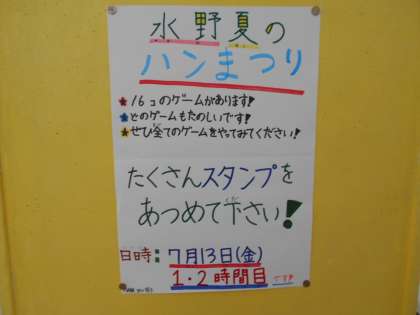 水野夏の
ハンまつり
★16コのゲームがあります!
★どのゲームもたのしいです!
★ぜひ全てのゲームをやってみてください!
たくさんスタンプを
あつめて下さい!
日時:7月13日(金)
1・2時間目です!